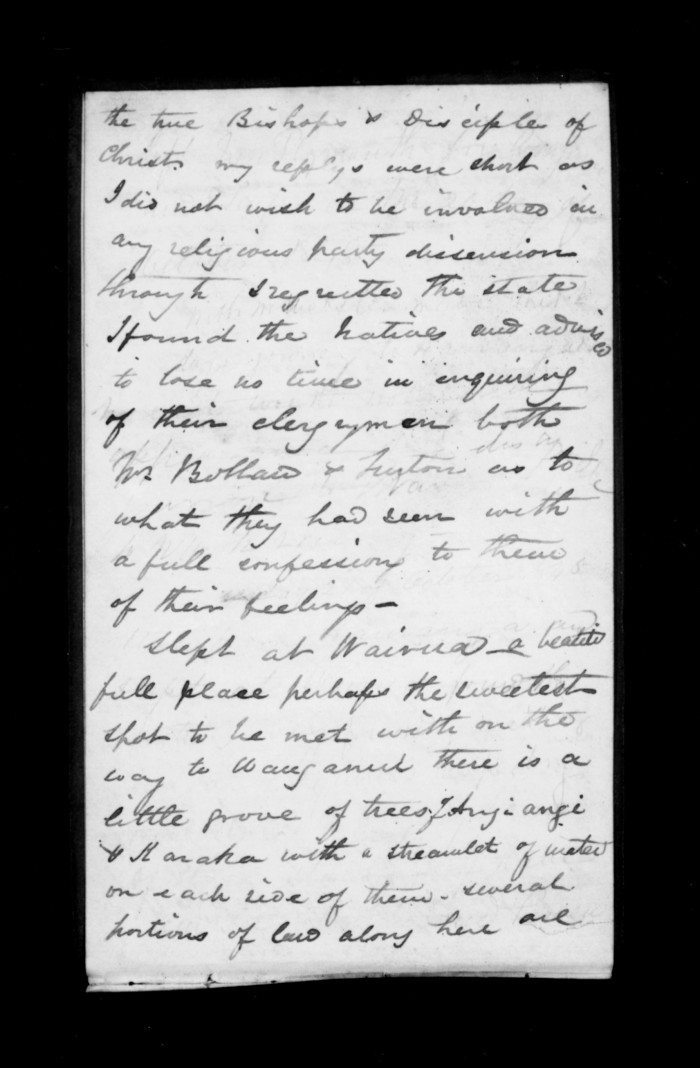 the true Bishops & Disciples of
Christ. my replys were short as
I did not wish to be involved in
any religious party dissension
through I regretted the state
I found the Natives and advised
to lose no time in inquiring
of their clergymen both
Mr Bollaw & as to
what they had seen with
a full confession to them
of their feelings —
Slept at Wairua a beauti
full place perhaps the sweetest
spot to be met with on the
way to Wanganui there is a
little grove of trees, Angiangi
& Karaka with a streamlet of water
on each side of them - several
portions of land along here are